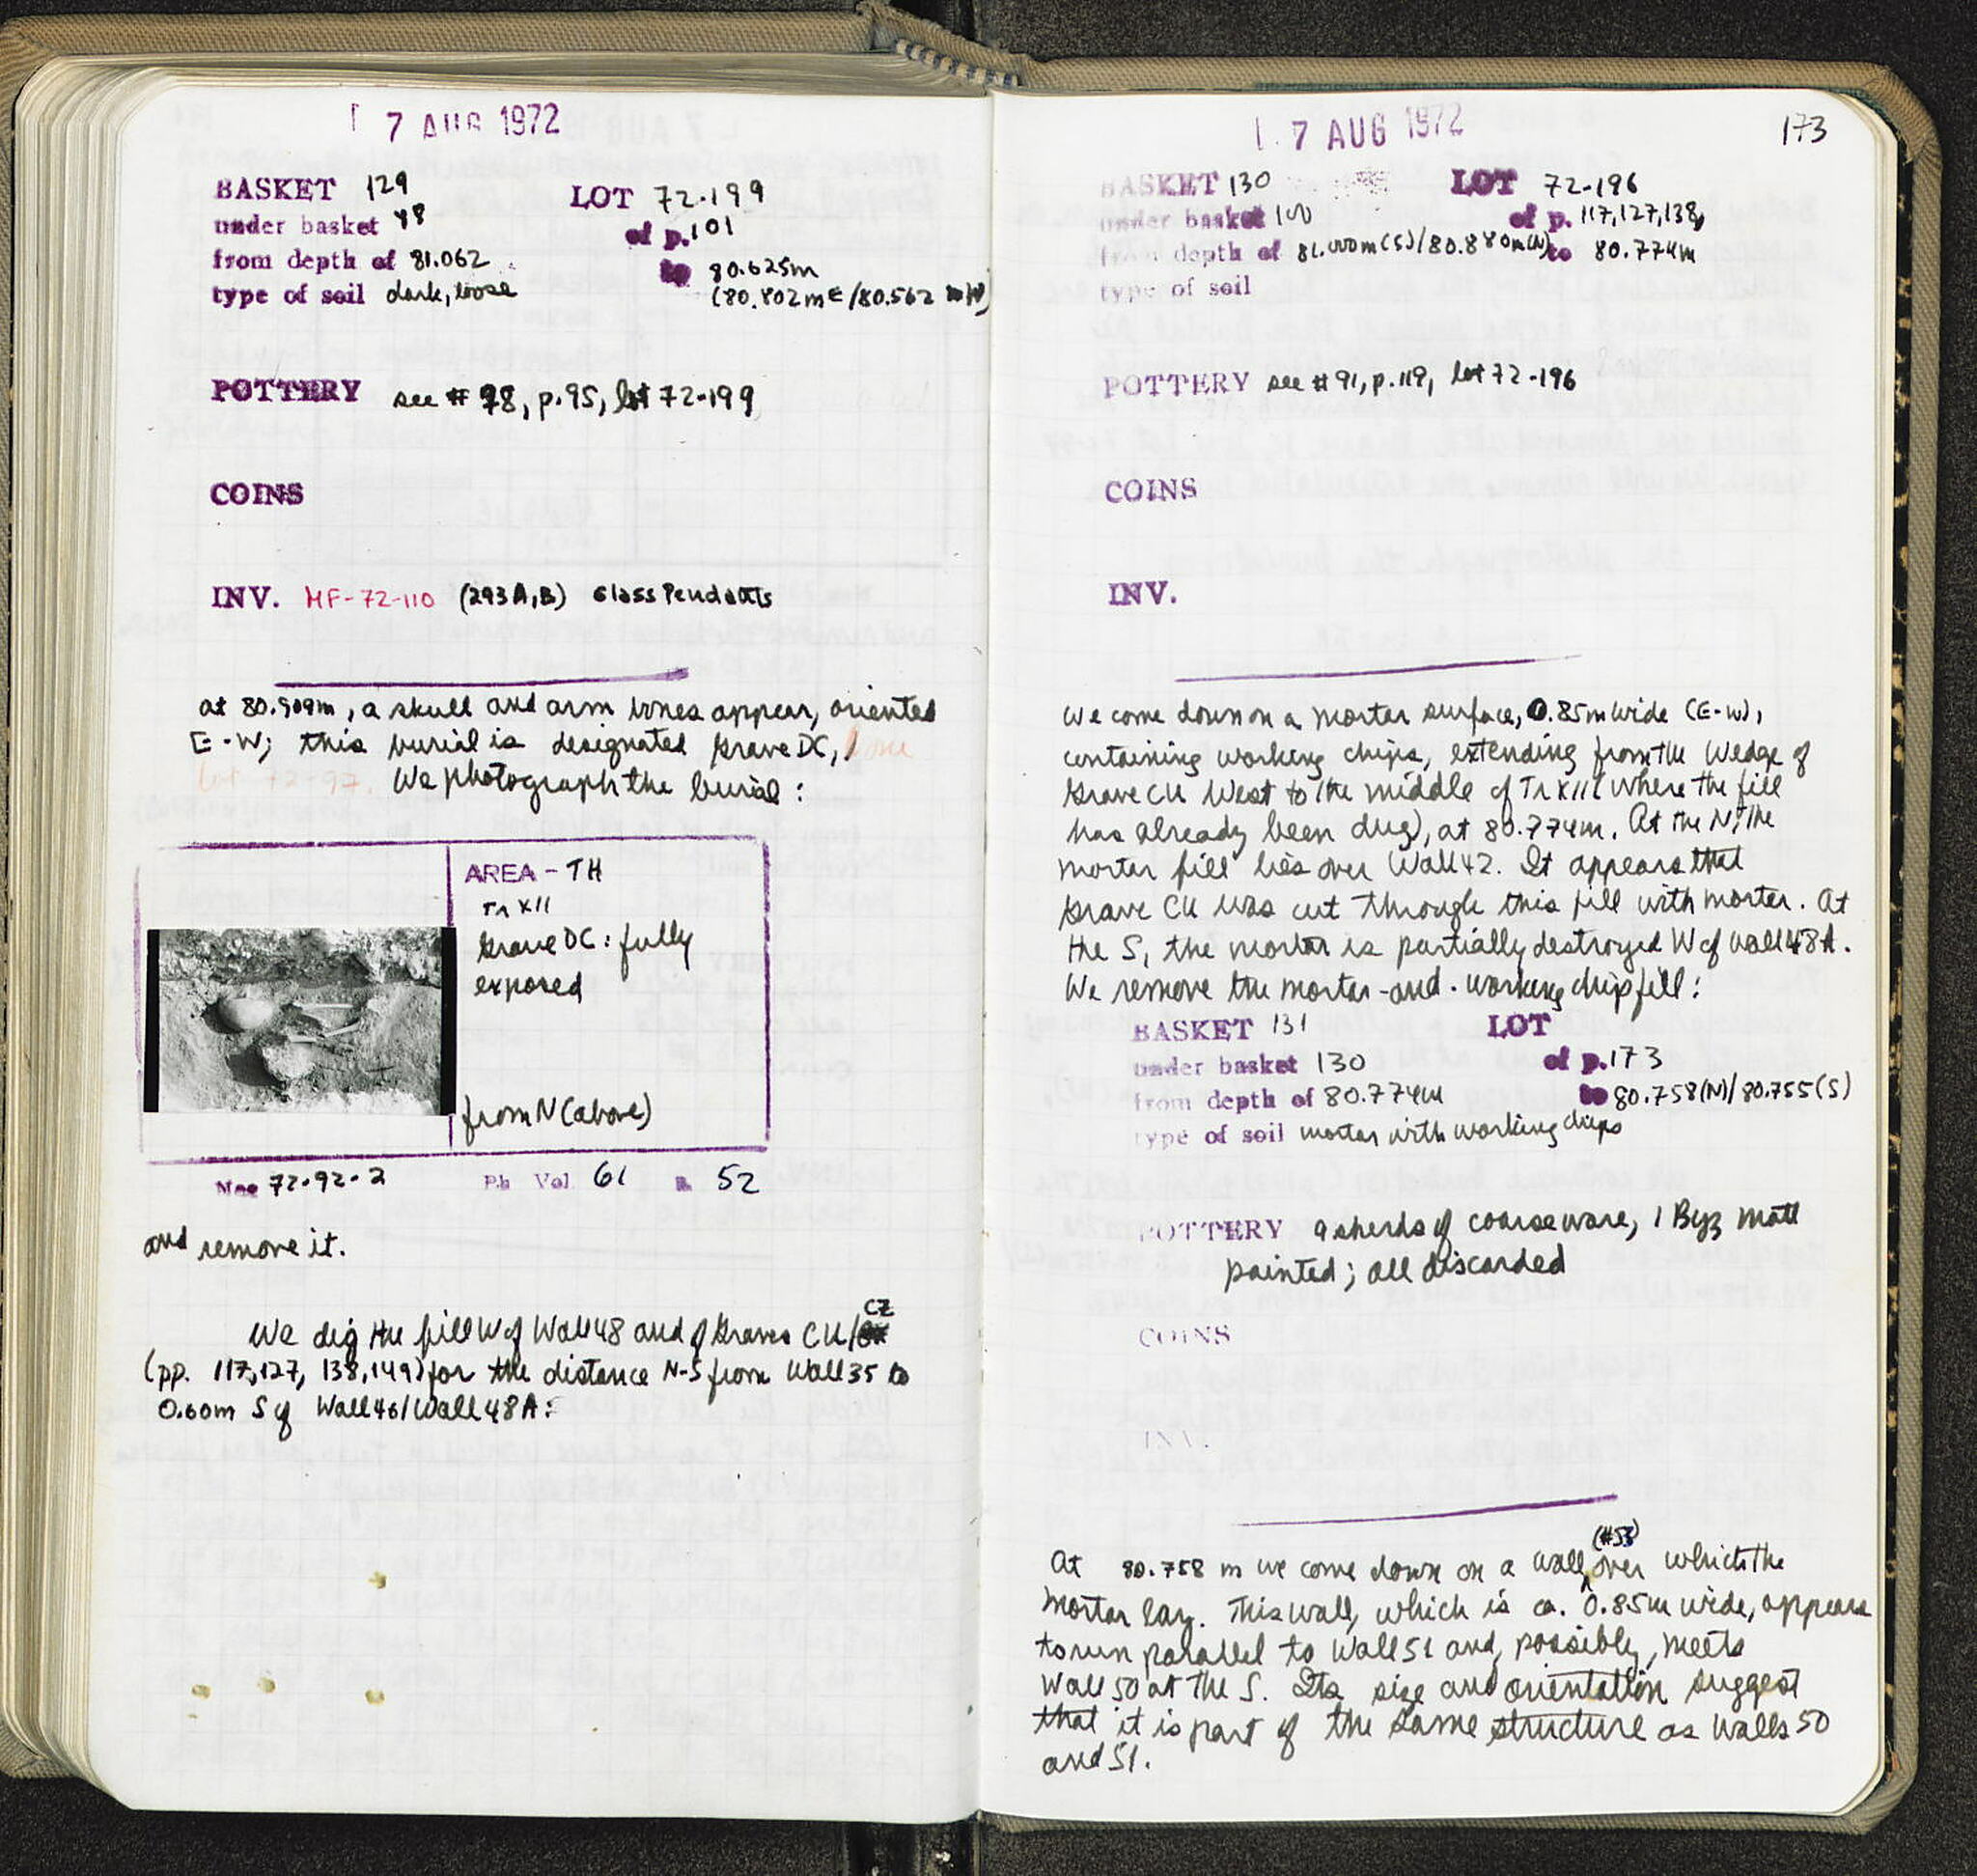 7 AUG 1972
BASKET 129 LOT 72-199
under basket 98 of p. 101
from depth of 81.062 to 80.625m
type of soil dark, loose (80.802mE/80.562 mW)
POTTERY see # 98, p.95, lot 72-199
COINS
INV. MF-72-110 (293A,B) Glass Pendants
at 80.909m, a skull and arm bones appear, oriented
E-W; this burial is designated Grave DC, bone
lot 72-97. We photograph the burial:
AREA - TH
Tr XII
Grave DC: fully
exposed
from N (above)
Neg 72-92-2 Ph Vol 61 p. 52
and remove it.
CZ
We dig the fill W of Wall 48 and of Graves CU/
(pp. 117,127, 138,149) for the distance N-S from Wall 35 to
0.60m S of Wall 46/Wall 48A:
7 AUG 1972 173
BASKET 130 LOT 72-196
under basket 100 of p. 117,127,138,
from depth of 81.000m(S)/80.880m(N) to 80.774m
type of soil
POTTERY see #91, p.119, lot 72-196
COINS
INV.
We come down on a mortar surface, 0.85m wide (E-W),
containing working chips, extending from the W edge of
Grave CU West to the middle of Tr XII (where the fill
has already been dug), at 80.774m. At the N, the
mortar fill lies over Wall 42. It appears that
Grave CU was cut through this fill with mortar. At
the S, the mortar is partially destroyed W of wall 48A.
We remove the mortar-and-working chip fill:
BASKET 131 LOT
under basket 130 of p. 173
from depth of 80.774m to 80.758(N)/80.755(S)
type of soil mortar with working chips
POTTERY 9 sherds of coarse ware, 1 Byz matt
painted; all discarded
COINS
INV.
(#53)
At 80.758 m we come down on a wall, over which the
mortar lay. This wall, which is ca. 0.85m wide, appears
to run parallel to Wall 51 and, possibly, meets
Wall 50 at the S. Its size and orientation suggest
that it is part of the same structure as Walls 50
and 51.